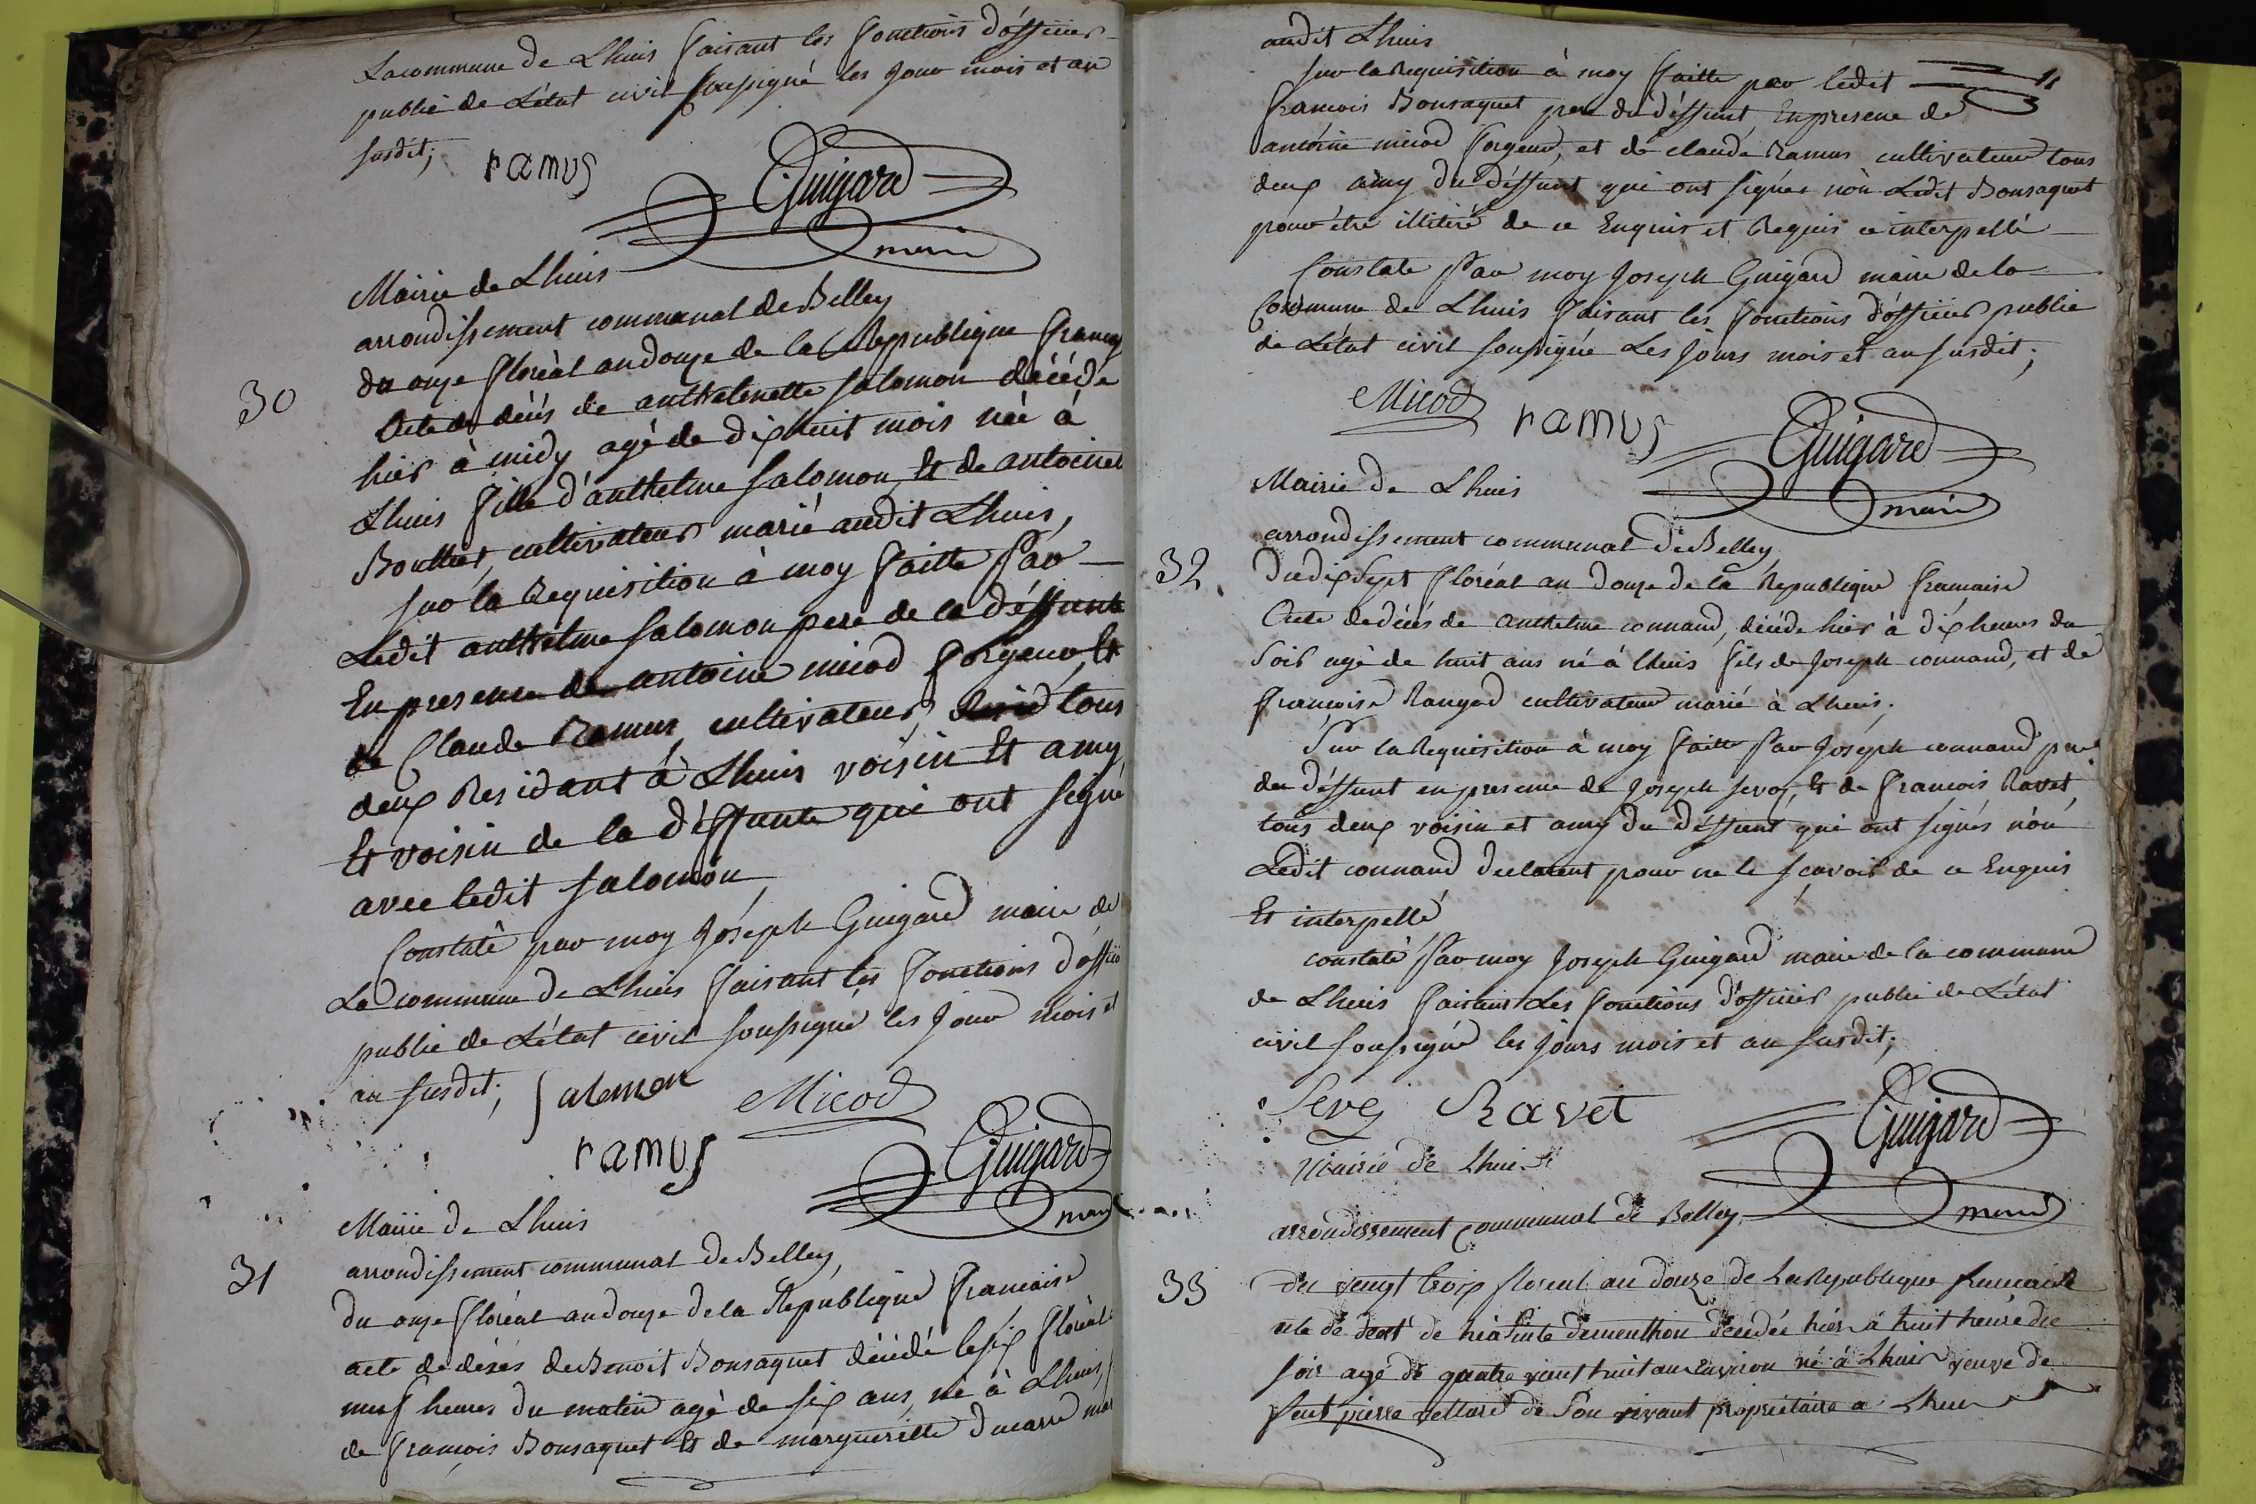 La commune de Lhuis faisant les fonctions d'officier
public de L'état civil soussigné les jour mois et an
susdit;
ramus
Guigard
maire
Mairie de Lhuis
arrondissement communal de Belley
30
du onze floréal an douze de la Republique francaise
Acte de décés de anthelmette salomon décéde
hier à midy agé de dixhuit mois née à
Lhuis fille d'anthelme salomon et de antoinette
cultivateur marié audit Lhuis,
sur la Requisition à moy faitte par
Ledit anthelme salomon pere de la déffunte
En presence de antoine micod forgeur, Et
de Claude Ramus cultivateur tous
deux Residant à Lhuis voisin Et amy
Et voisin de la déffunte qui ont signé
avec ledit salomon
Constaté par moy Joseph Guigard maire de
La commune de Lhuis faisant les fonctions d'officier
public de L'état civil soussigné les jour mois et
an susdit;
salomon
Micod
ramus
Guigard
maire
Mairie de Lhuis
arrondissement communal de Belley
31
du onze floréal an douze de la Republique francaise
acte de décés de Benoit Bonsaquet décédé le six floréal
neuf heures du matin agé de six ans, né à Lhuis,
de françois Bonsaquet Et de margueritte Ducarre mar
audit Lhuis
11
sur la Requisition à moy faitte par ledit
francois Bonsaquet pere du déffunt, En presence de
antoine micod forgeur, et de claude Ramus cultivateur tous
deux amy du déffunt qui ont signés nòn Ledit Bonsaquet
pour étre illitéré de ce Enquis et Requis ce interpellé
Constaté Par moy Joseph Guigard maire de la
Commune de Lhuis faisant les fonctions d'officier public
de L'état civil soussigné Les jours mois et an susdit;
Micod
ramus
Guigard
maire
Mairie de Lhuis
arrondissement communal de Belley
32
Du dix sept floréal an douze de la Republique francaise
Acte de décés de anthelme connand, décéde hier à dix heures du
soir agé de huit ans né à lhuis fils de Joseph connand, et de
françoise cultivateur marié à Lhuis;
Sur la Requisition à moy faitte Par Joseph connand pere
du déffunt en presence de Joseph sevoz, Et de francois Ravet,
tous deux voisin et amy du déffunt qui ont signés nòn
Ledit connand declarent pour ne le sçavoir de ce Enquis
Et interpellé
constaté Par moy Joseph Guigard maire de la commune
de Lhuis faisant Les fonctions d'officier public de L'état
civil soussigné les jours mois et an susdit;
Ravet
Guigard
maire
Mairie de Lhuis
arrondissement communal de Belley
33
du vengt troix floreal an douze de La Republique francaise
de deces de dementhon decedée hier à huit heure du
soir agé de quatre vient huit an environ né à Lhuis veuve de
feut pierre de Son vivant propriétaire à Lhuis